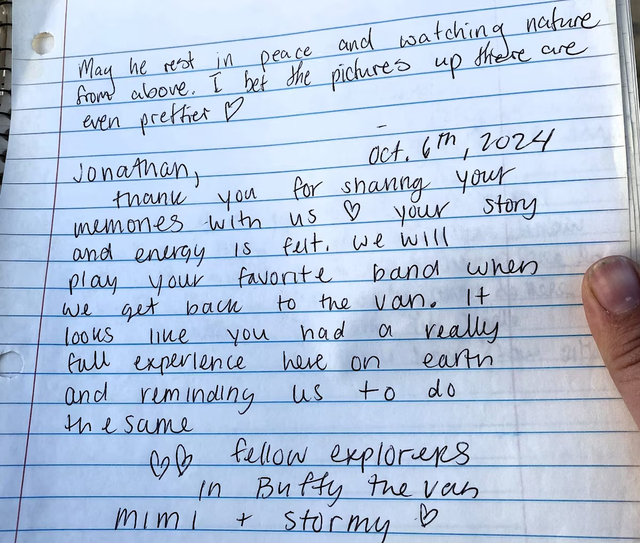 May he rest in peace and watching nature
from above. I bet the pictures up there are
even prettier ♡
Oct. 6th, 2024
Jonathan,
thank you for sharing your
memories with us ♡ your story
and energy is felt. we will
play your favorite band when
we get back to the van. It
looks like you had a really
full experience here on earth
and reminding us to do
the same
♡♡ fellow explorers
in Buffy the van
mimi + stormy ♡